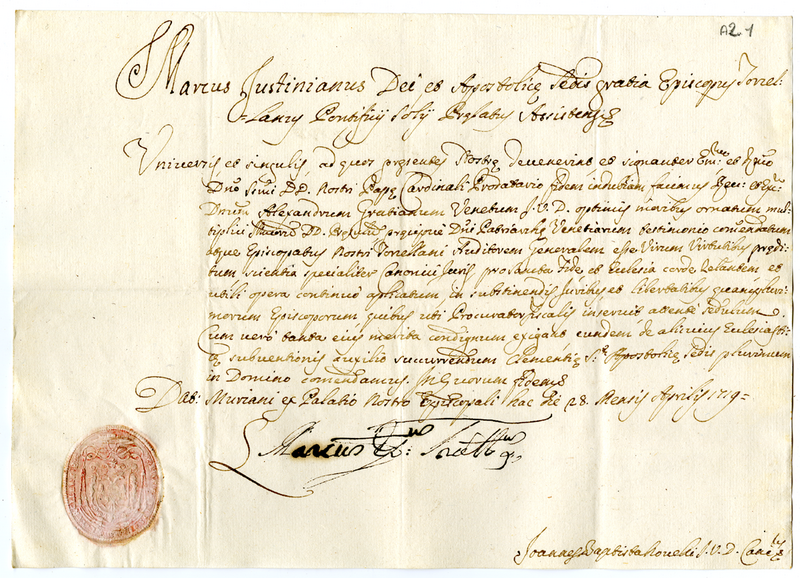 A2.1
Marcus Justinianus Dei et Apostolicę Sedis gratia Episcopus Torcel-
lanus Pontificij Solij Pręlatus Assistens
Universis, et singulis, ad quos pręsentes Nostrę devenerint et signanter Em.mo et
Dno Dno DD. Nostri Papę Cardinali Prodatario fidem indubiam facimus
Dnum Alexandrum Gratianum Venetum J.V.D. optimis moribus ornatum mul-
tiplici DD. pręcipue Dni Patriarchę Venetiarum testimonio comendatum
atque Episcopatus Nostri Torcellani Auditorem Generalem esse Virum Virtutibus prędi-
tum scientia specialiter Canonici Juris pro sancta fide et Eclesia corde zelantem et
utili opera continuò in substinendis Juribus et libertatibus quamplur-
imorum Episcoporum quibus uti Procurator fiscalis inservit attentè sedulum
Cum verò tanta eius merita condignum exigant eundem de alicuius Eclesiasti-
cę subventionis auxilio succurrendum Clementię S.tę Apostolicę Sedis plurimum
in Domino comendamus. In Quorum fidem
Dat: Muriani ex Palatio Nostro Episcopali hac die 28. Mensis Aprilis 1719
Marcus
Joannes Baptista J.V.D. Canc.